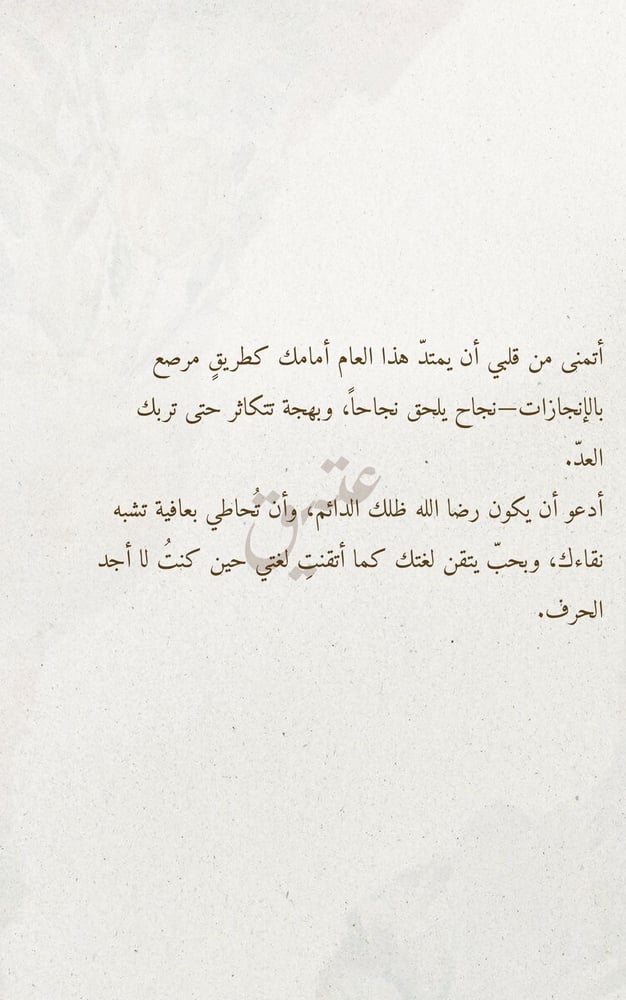 أتمنى من قلبي أن يمتدّ هذا العام أمامك كطريقٍ مرصع
بالإنجازات—نجاح يلحق نجاحاً، وبهجة تتكاثر حتى تربك
العدّ.
عتيق
أدعو أن يكون رضا الله ظلك الدائم، وأن تُحاطي بعافية تشبه
نقاءك، وبحبّ يتقن لغتك كما أتقنتِ لغتي حين كنتُ لا أجد
الحرف.